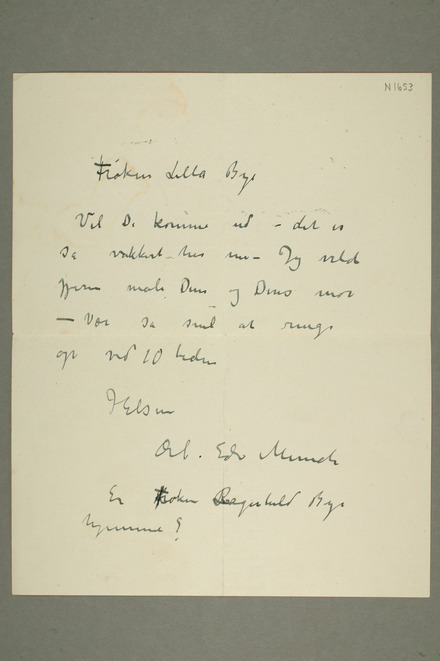 N 1653
Frøken Lilla Bye
Vil De komme ud – det er
så vakkert her nu – Jeg vilde
gjerne male Dem og Deres mor
– Vær så snil at ringe
op ved 10 tiden
Hilsen
Erb. Edv Munch
Er Frøken Ragnhild Bye
hjemme?